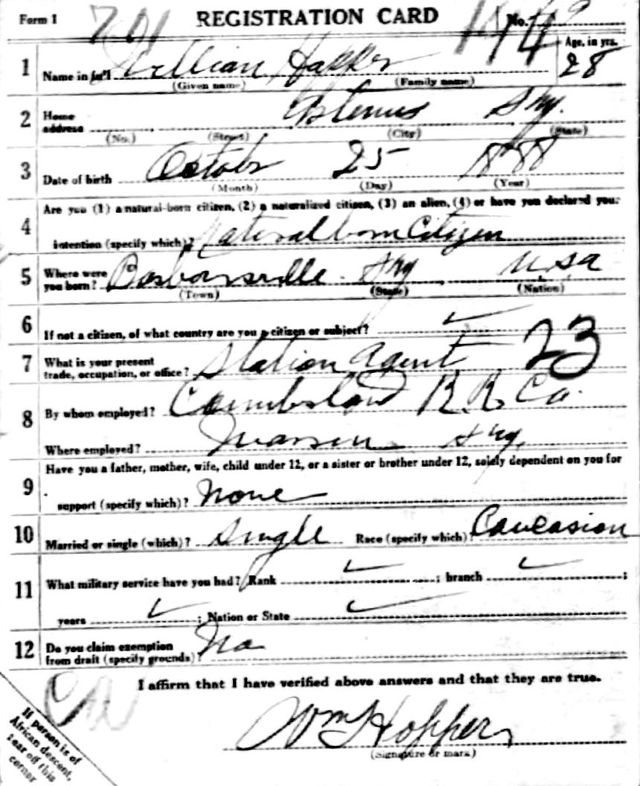 Form 1 REGISTRATION CARD No.
Age, in yrs.
1 Name in full William Hopper 28
(Given name) (Family name)
2 Home address Artemus Ky.
(No.) (Street) (City) (State)
3 Date of birth October 25 1888
(Month) (Day) (Year)
Are you (1) a natural-born citizen, (2) a naturalized citizen, (3) an alien, (4) or have you declared your
4 intention (specify which)? Natural born Citizen
5 Where were you born? Barbourville Ky USA
(Town) (State) (Nation)
6 If not a citizen, of what country are you a citizen or subject? ✓
7 What is your present trade, occupation, or office? Station Agent 23
8 By whom employed? Cumberland R.R. Co.
Where employed? Warren Ky.
9 Have you a father, mother, wife, child under 12, or a sister or brother under 12, solely dependent on you for
support (specify which)? None
10 Married or single (which)? Single Race (specify which)? Caucasion
11 What military service have you had? Rank ✓ ; branch ✓ ;
years ✓ ; Nation or State ✓
12 Do you claim exemption from draft (specify grounds)? No
I affirm that I have verified above answers and that they are true.
Wm Hopper
(Signature or mark)
If person is of
African descent,
tear off this
corner